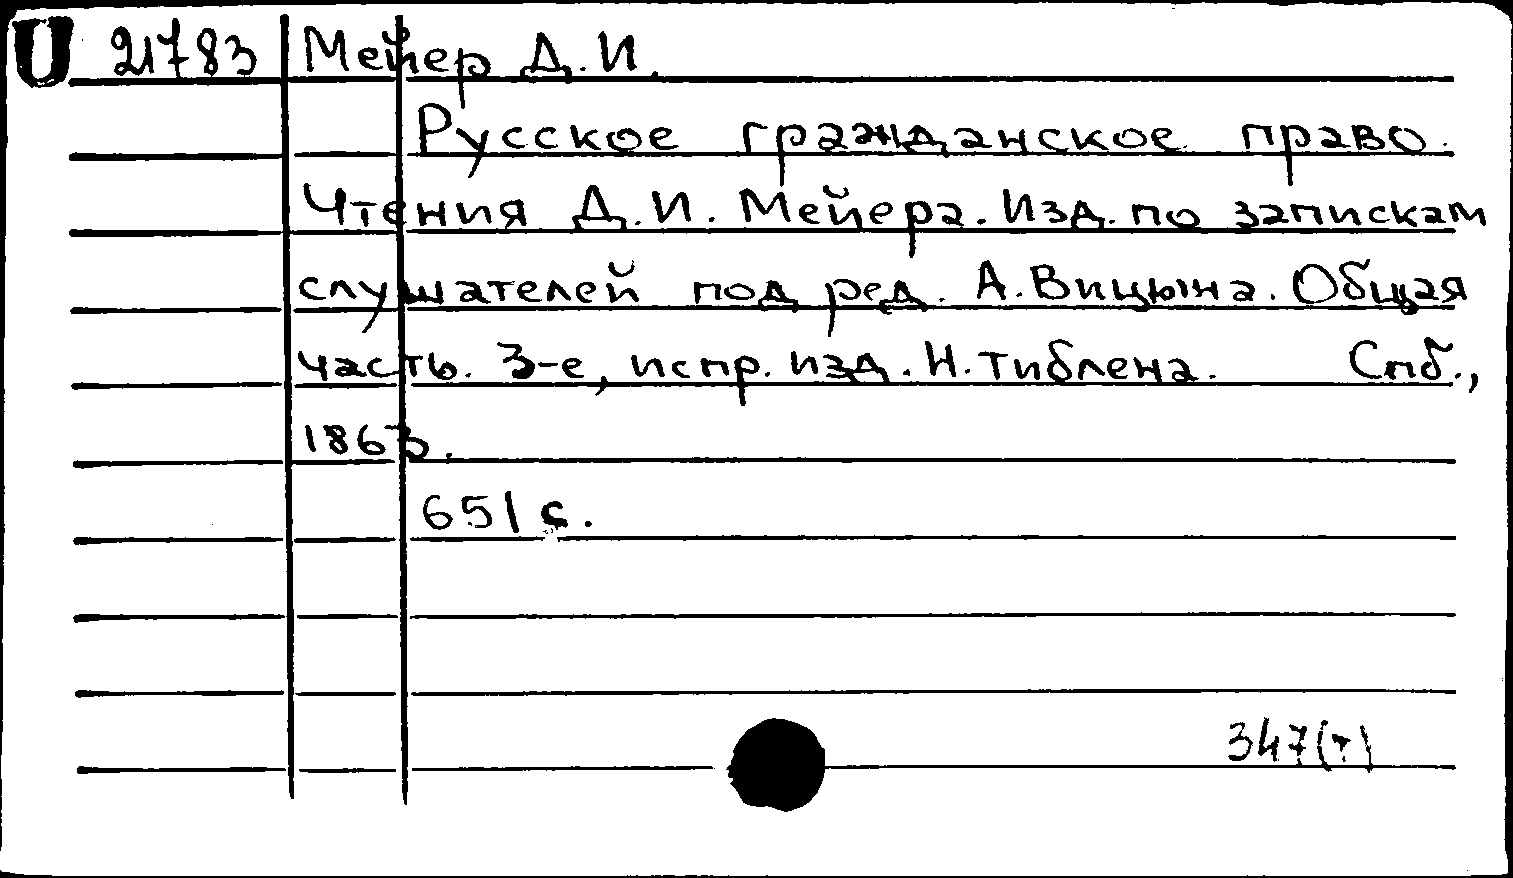 U 21783 Мейер Д.И.
Русское гражданское право.
Чтения Д.И. Мейера. Изд. по запискам
слушателей под ред. А. Вицына. Общая
часть. 3-е, испр. изд. Н. Тиблена. Спб.,
1863.
651 с.
347(т)